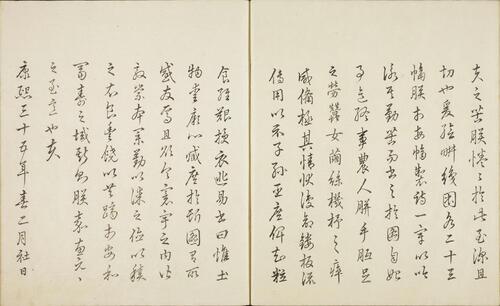 夫之苦朕惓惓於此至深且
切也爰繪耕織圖各二十三
幅朕於每幅製詩一章以吟
詠其勤苦而書之於圖自始
事迄終事農人胼手胝足
之勞蠶女繭絲機杼之瘁
咸備極其情狀復命鏤板流
傳用以示子孫臣庶俾知粒
食維艱授衣匪易書曰惟土
物愛厥心臧庶於斯圖有所
感發焉且欲令寰宇之內皆
敦崇本業勤以謀之儉以積
之衣食豐饒以共躋於安和
富壽之域斯則朕嘉惠元元
之至意也夫
康熙三十五年春二月社日